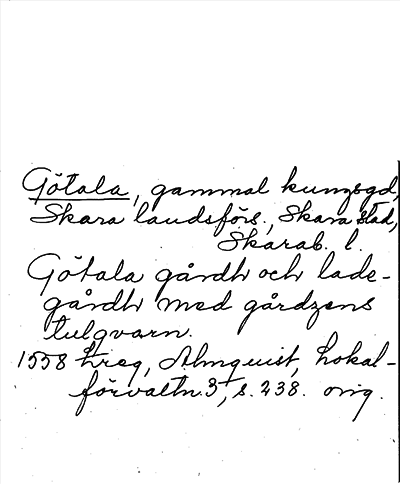 Götala, gammal kungsgd,
Skara landsförs., Skara stad,
Skarab. l.
Götala gårdh och lade-
gårdh med gårdzens
tulqvarn.
1558 treg, Almquist, Lokal-
förvaltn. 3, s. 238. orig.